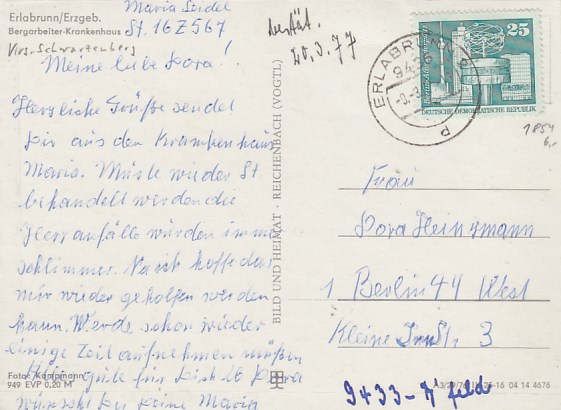 Maria Seidel
St. 16 Z 567
Erlabrunn/Erzgeb.
Bergarbeiter-Krankenhaus
Krs. Schwarzenberg
Meine liebe Dora!
Herzliche Grüße sendet
Dir aus den Krankenhaus
Maria. Müßte wieder St.
behandelt werden die
Herzanfälle würden immer
schlimmer. Na ich hoffe das
mir wieder geholfen werden
kann. Werde schon wieder
einige Zeit aufnehmen müßen
Alles gute für Dich Dora
wünscht Dir Deine Maria
Foto: Kampmann
949 EVP 0,20 M
BILD UND HEIMAT · REICHENBACH (VOGTL)
20.3.77
ERLABRUNN
25
DEUTSCHE DEMOKRATISCHE REPUBLIK
1854
6,-
Frau
Dora Heinzmann
1 Berlin 44 West
Kleine Str. 3
04 14 4676
9433